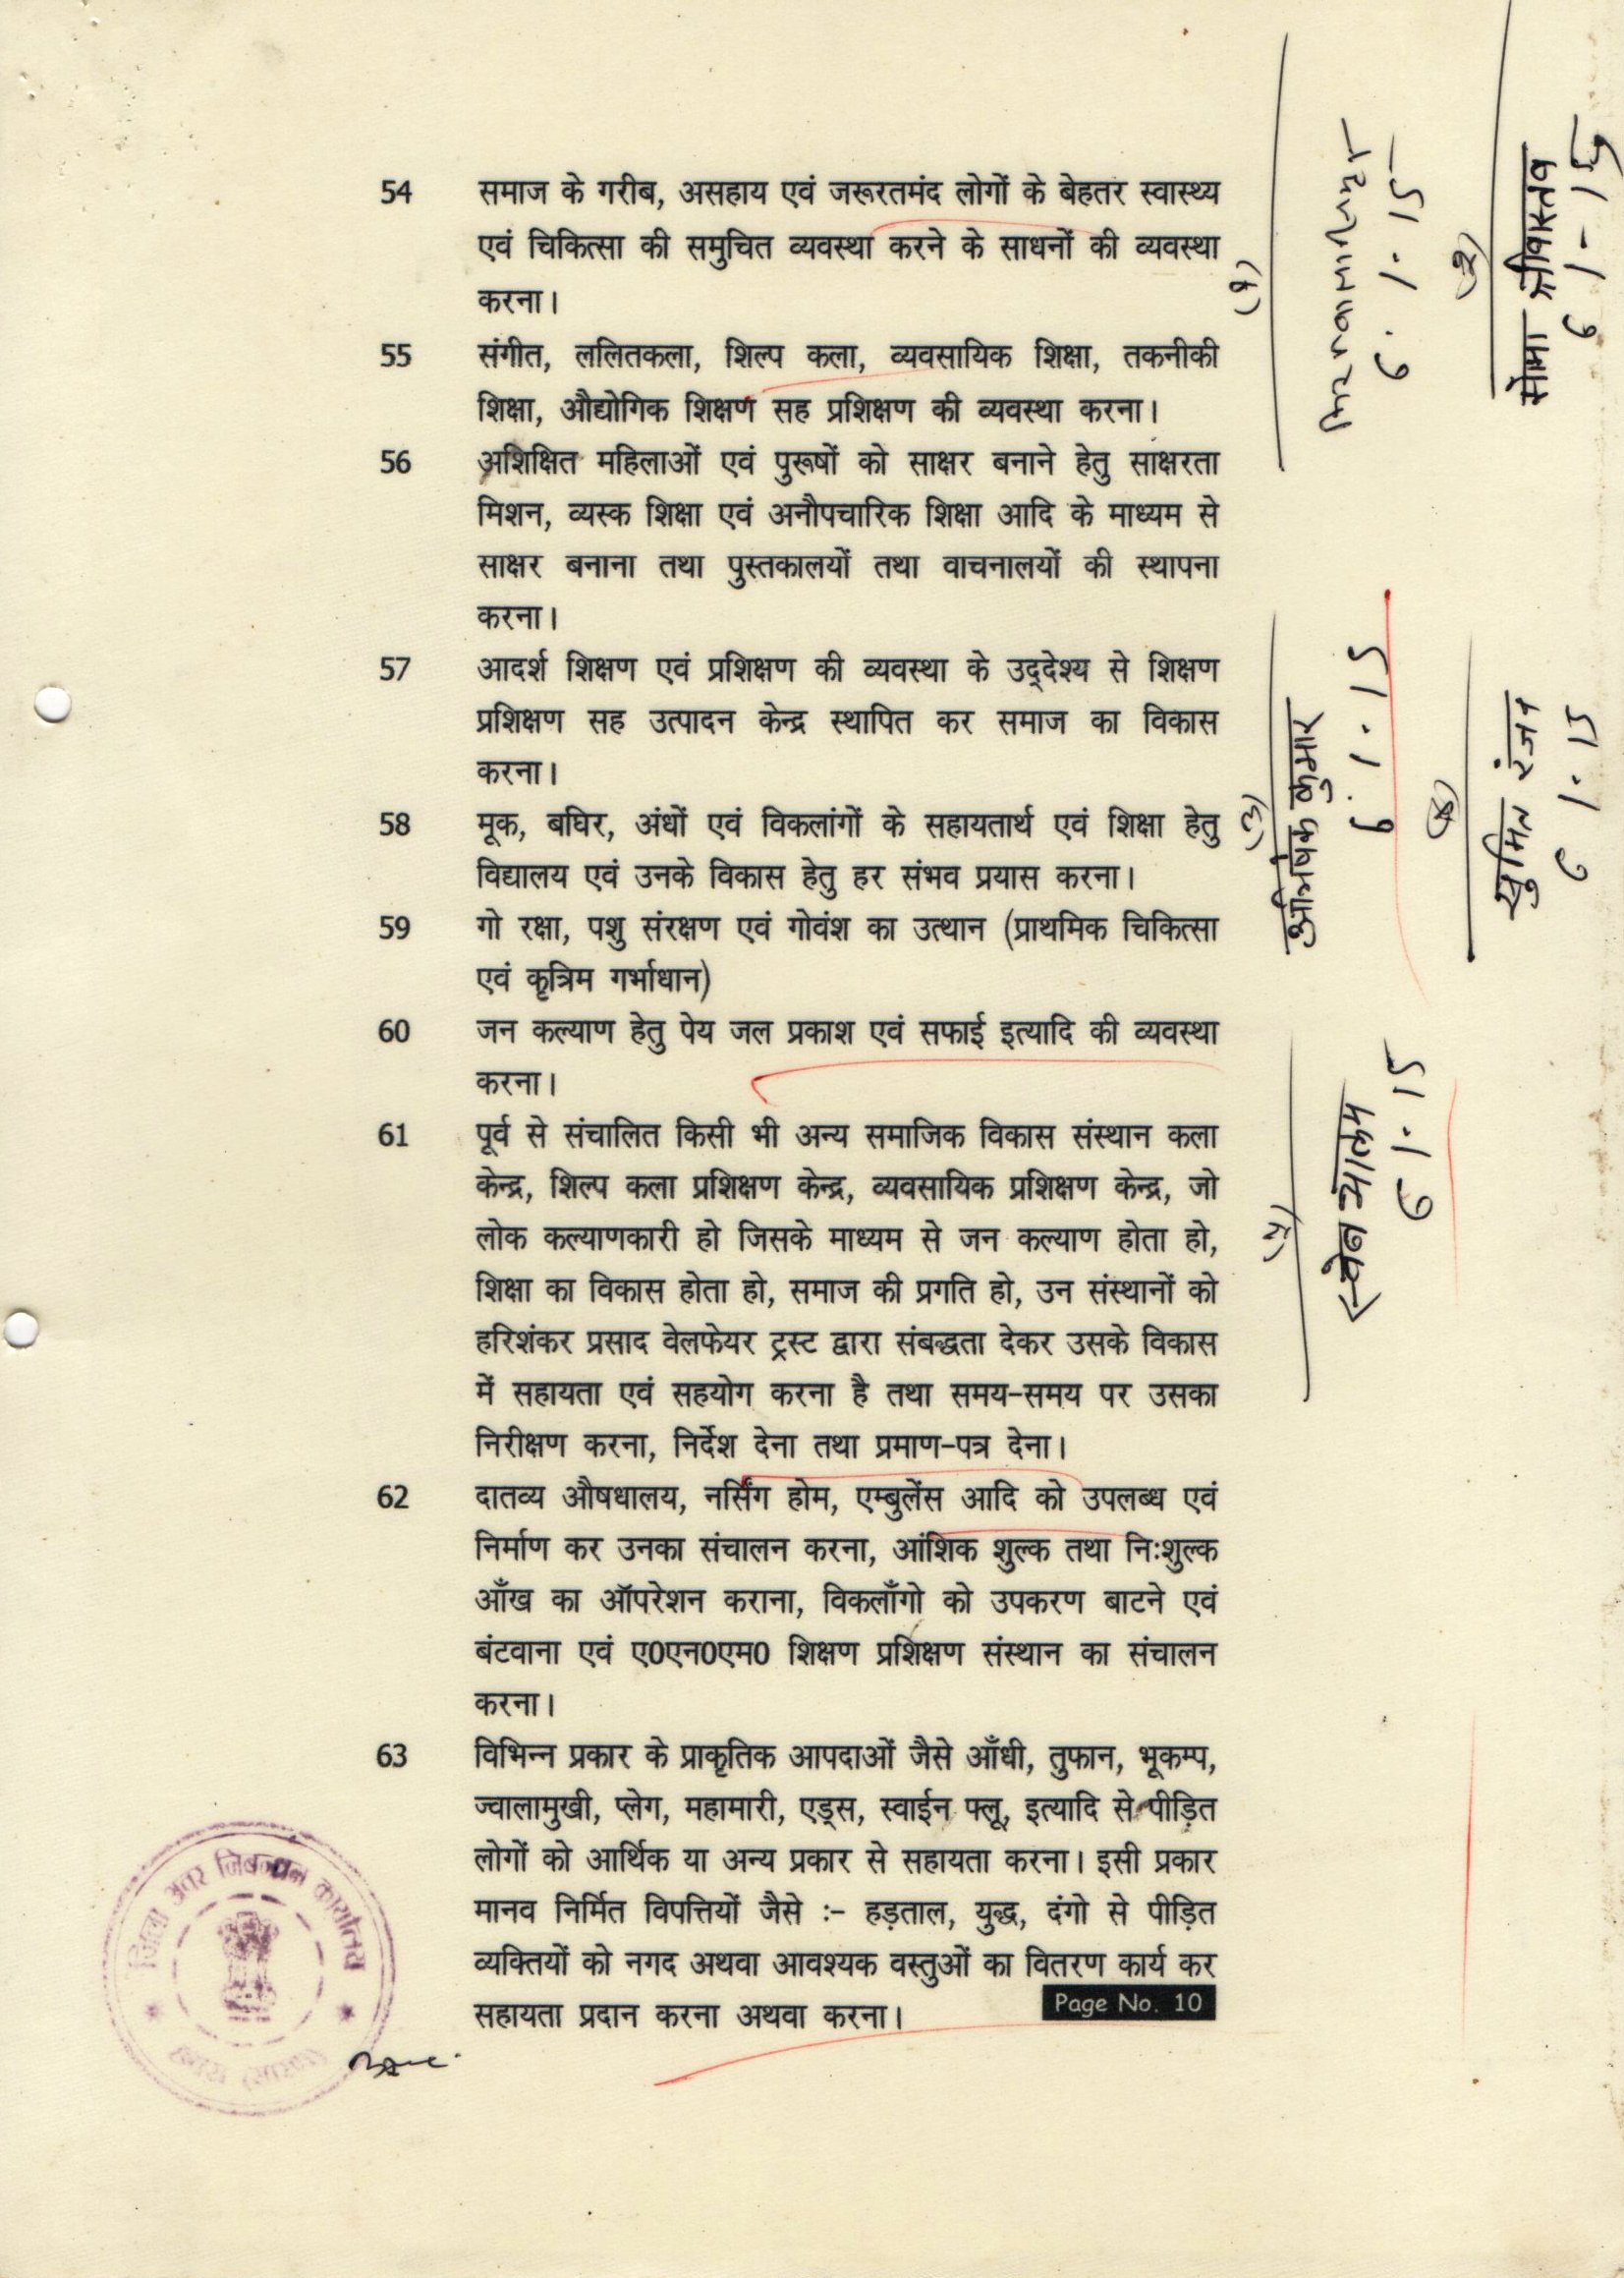 54 समाज के गरीब, असहाय एवं जरूरतमंद लोगों के बेहतर स्वास्थ्य
एवं चिकित्सा की समुचित व्यवस्था करने के साधनों की व्यवस्था
करना।
55 संगीत, ललितकला, शिल्प कला, व्यवसायिक शिक्षा, तकनीकी
शिक्षा, औद्योगिक शिक्षण सह प्रशिक्षण की व्यवस्था करना।
56 अशिक्षित महिलाओं एवं पुरूषों को साक्षर बनाने हेतु साक्षरता
मिशन, व्यस्क शिक्षा एवं अनौपचारिक शिक्षा आदि के माध्यम से
साक्षर बनाना तथा पुस्तकालयों तथा वाचनालयों की स्थापना
करना।
57 आदर्श शिक्षण एवं प्रशिक्षण की व्यवस्था के उद्देश्य से शिक्षण
प्रशिक्षण सह उत्पादन केन्द्र स्थापित कर समाज का विकास
करना।
58 मूक, बघिर, अंधों एवं विकलांगों के सहायतार्थ एवं शिक्षा हेतु
विद्यालय एवं उनके विकास हेतु हर संभव प्रयास करना।
59 गो रक्षा, पशु संरक्षण एवं गोवंश का उत्थान (प्राथमिक चिकित्सा
एवं कृत्रिम गर्भाधान)
60 जन कल्याण हेतु पेय जल प्रकाश एवं सफाई इत्यादि की व्यवस्था
करना।
61 पूर्व से संचालित किसी भी अन्य समाजिक विकास संस्थान कला
केन्द्र, शिल्प कला प्रशिक्षण केन्द्र, व्यवसायिक प्रशिक्षण केन्द्र, जो
लोक कल्याणकारी हो जिसके माध्यम से जन कल्याण होता हो,
शिक्षा का विकास होता हो, समाज की प्रगति हो, उन संस्थानों को
हरिशंकर प्रसाद वेलफेयर ट्रस्ट द्वारा संबद्धता देकर उसके विकास
में सहायता एवं सहयोग करना है तथा समय-समय पर उसका
निरीक्षण करना, निर्देश देना तथा प्रमाण-पत्र देना।
62 दातव्य औषधालय, नर्सिंग होम, एम्बुलेंस आदि को उपलब्ध एवं
निर्माण कर उनका संचालन करना, आंशिक शुल्क तथा निःशुल्क
आँख का ऑपरेशन कराना, विकलाँगो को उपकरण बाटने एवं
बंटवाना एवं ए0एन0एम0 शिक्षण प्रशिक्षण संस्थान का संचालन
करना।
63 विभिन्न प्रकार के प्राकृतिक आपदाओं जैसे आँधी, तुफान, भूकम्प,
ज्वालामुखी, प्लेग, महामारी, एड्स, स्वाईन फ्लू, इत्यादि से पीड़ित
लोगों को आर्थिक या अन्य प्रकार से सहायता करना। इसी प्रकार
मानव निर्मित विपत्तियों जैसे :- हड़ताल, युद्ध, दंगो से पीड़ित
व्यक्तियों को नगद अथवा आवश्यक वस्तुओं का वितरण कार्य कर
सहायता प्रदान करना अथवा करना।
Page No. 10
6.1.15
श्रीवास्तव
6-1-15
अभिषेक कुमार
6.1.15
सुमित रंजन
6.1.15
आलम
6.1.15
जिला अवर निबन्धन कार्यालय